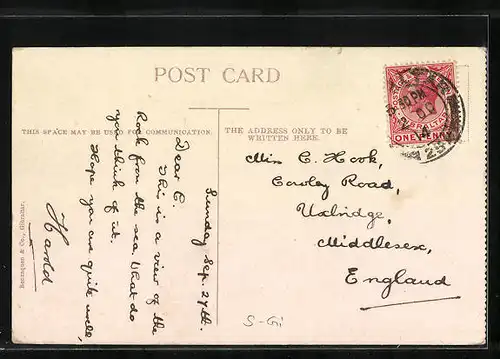 POST CARD
THIS SPACE MAY BE USED FOR COMMUNICATION.
THE ADDRESS ONLY TO BE
WRITTEN HERE.
Sunday Sep. 27th.
Dear C.
This is a view of the
Rock from the sea. What do
you think of it.
Hope you are quite well,
Harold
Miss C. Hook,
Cowley Road,
Uxbridge,
Middlesex,
England
ONE PENNY
Beanzaquen & Co., Gibraltar.
S-Gi